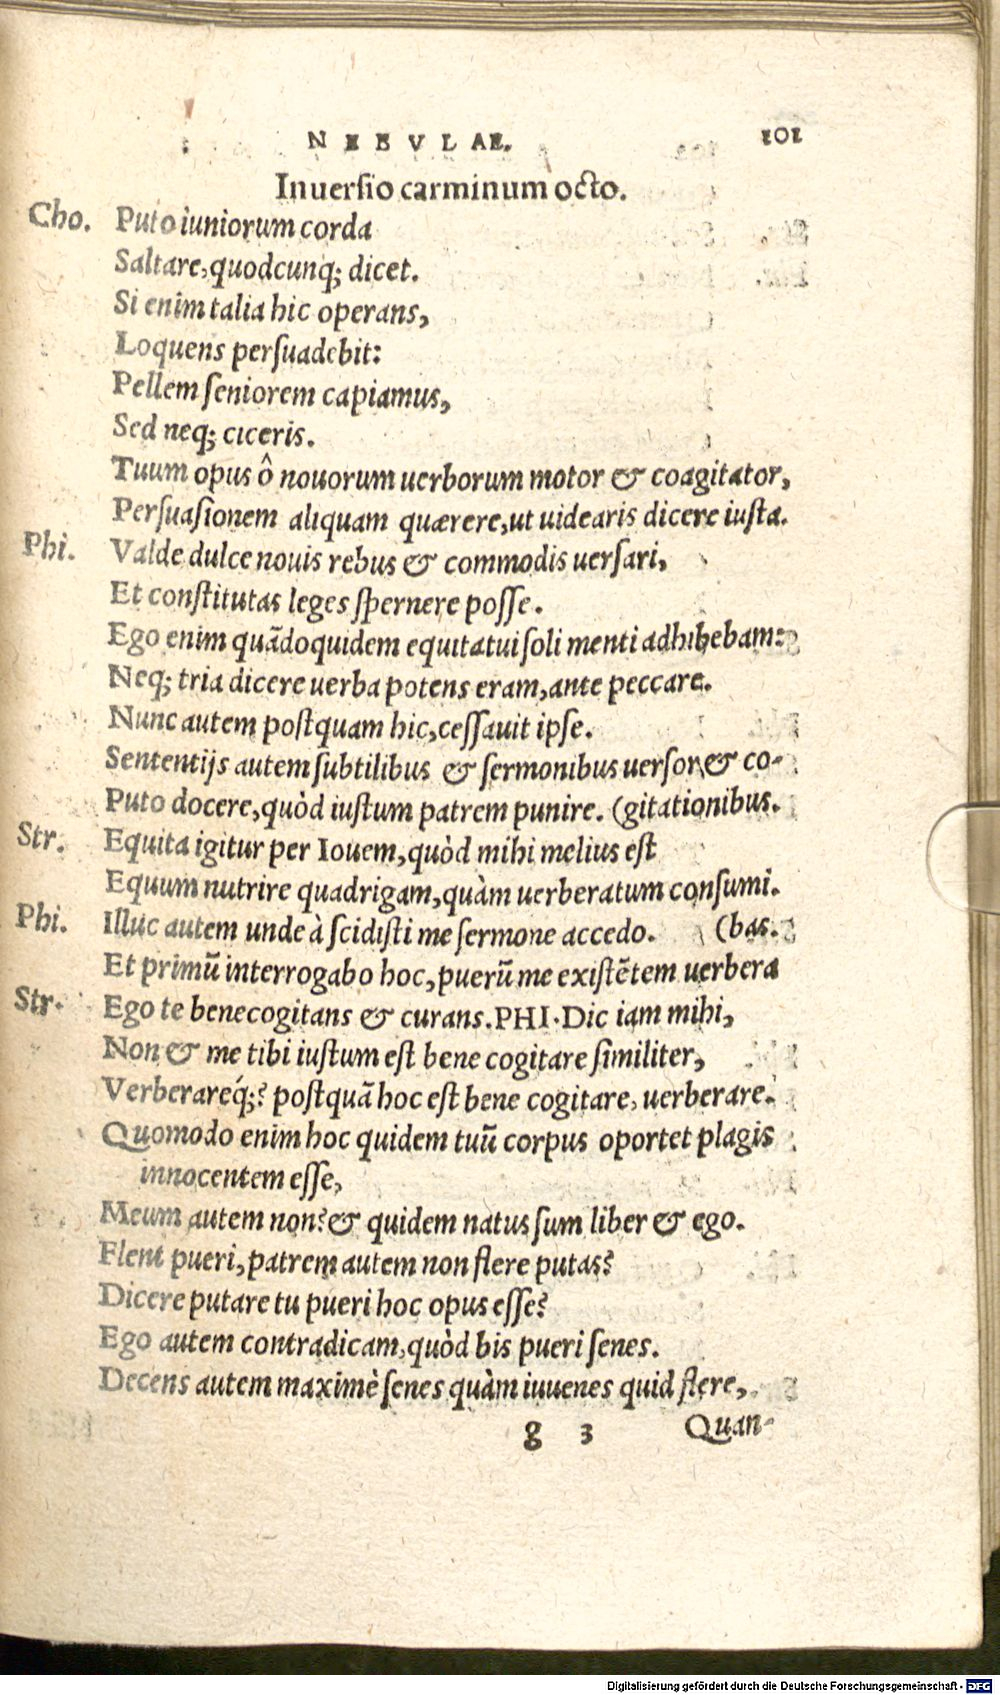 NEBVLAE. 101
Inuersio carminum octo.
Cho. Puto iuniorum corda
Saltare, quodcunq; dicet.
Si enim talia hic operans,
Loquens persuadebit:
Pellem seniorem capiamus,
Sed neq; ciceris.
Tuum opus ô nouorum uerborum motor & coagitator,
Persuasionem aliquam quærere, ut uidearis dicere iusta.
Phi. Valde dulce nouis rebus & commodis uersari,
Et constitutas leges spernere posse.
Ego enim quãdoquidem equitatui soli menti adhibebam:
Neq; tria dicere uerba potens eram, ante peccare.
Nunc autem postquam hic, cessauit ipse.
Sententijs autem subtilibus & sermonibus uersor, & co-
Puto docere, quòd iustum patrem punire. (gitationibus.
Str. Equita igitur per Iouem, quòd mihi melius est
Equum nutrire quadrigam, quàm uerberatum consumi.
Phi. Illuc autem unde à scidisti me sermone accedo. (bas.
Et primũ interrogabo hoc, puerũ me existẽtem uerbera
Str. Ego te bene cogitans & curans. PHI. Dic iam mihi,
Non & me tibi iustum est bene cogitare similiter,
Verberareq́;? postquã hoc est bene cogitare, uerberare.
Quomodo enim hoc quidem tuũ corpus oportet plagis
innocentem esse,
Meum autem non? & quidem natus sum liber & ego.
Flent pueri, patrem autem non flere putas?
Dicere putare tu pueri hoc opus esse?
Ego autem contradicam, quòd bis pueri senes.
Decens autem maximè senes quàm iuuenes quid flere,
g 3 Quan-
Digitalisierung gefördert durch die Deutsche Forschungsgemeinschaft - DFG